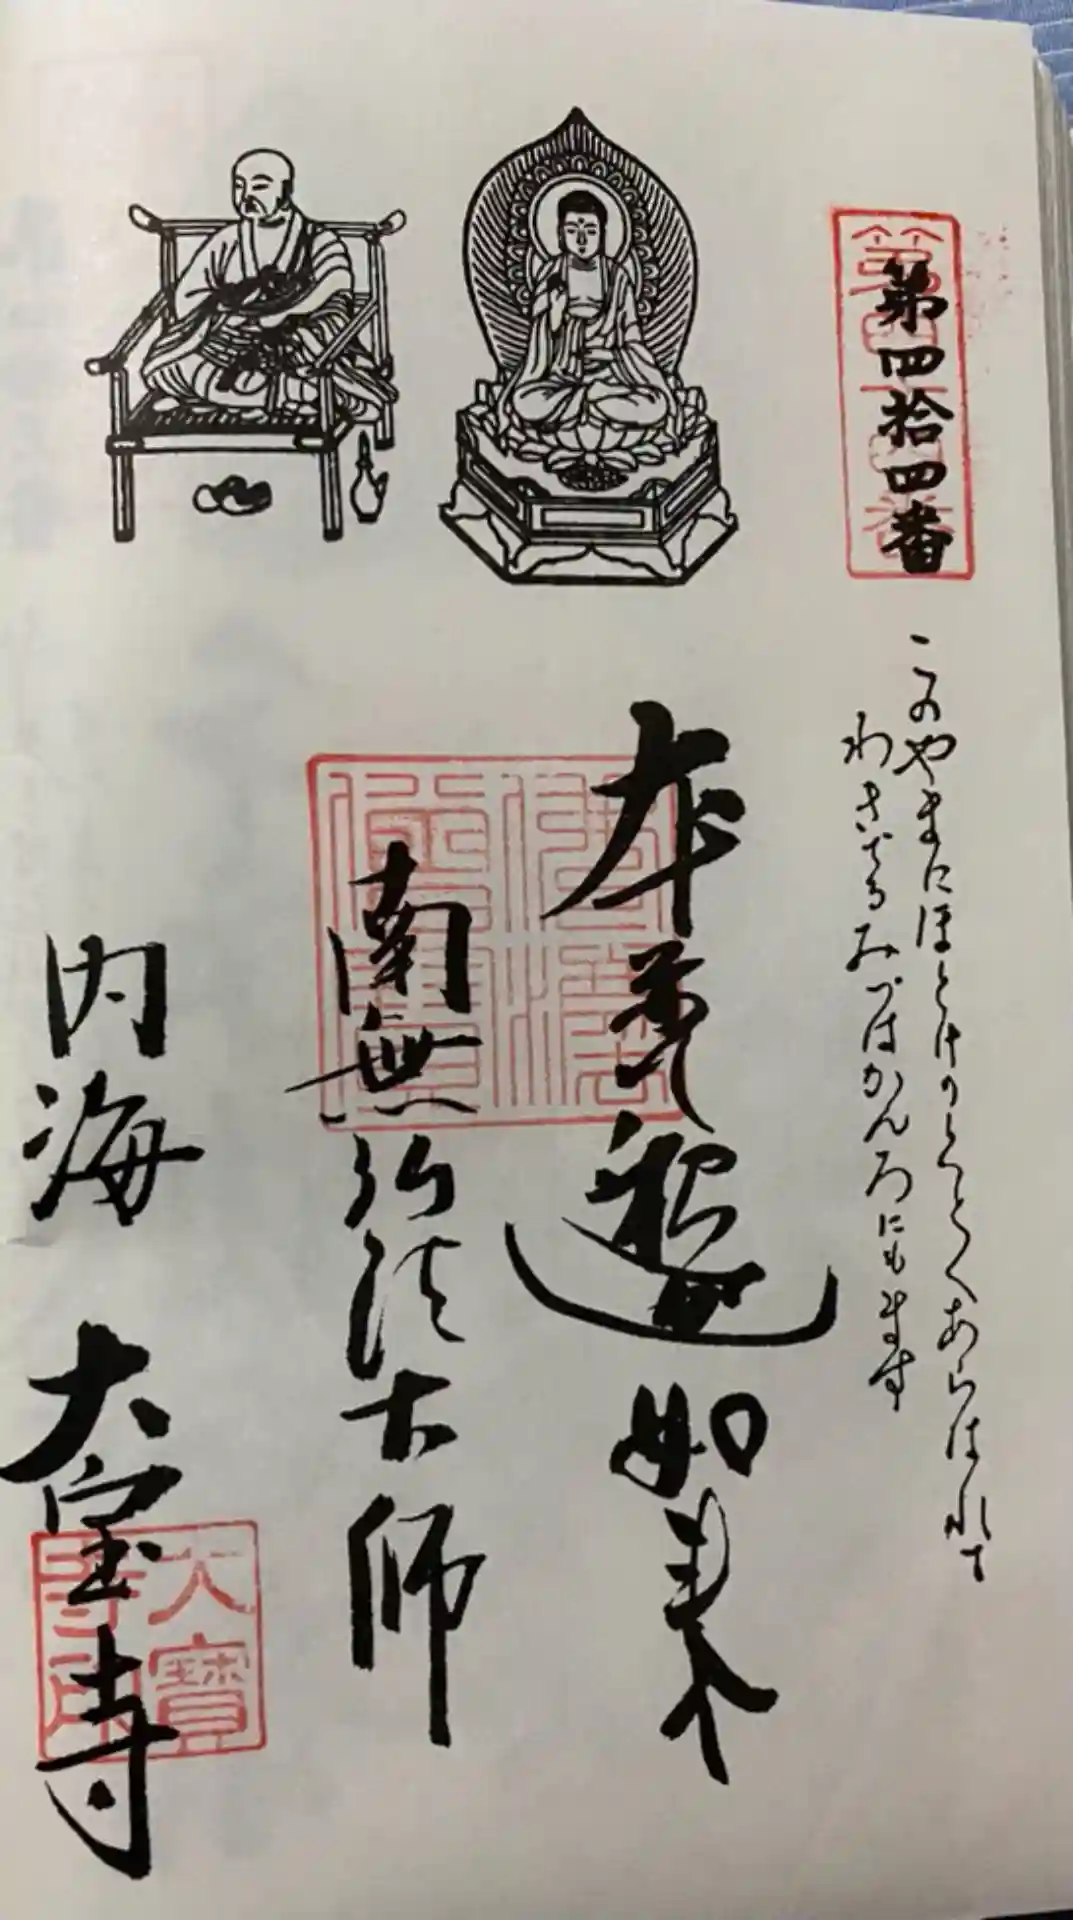 第四拾四番
このやまにほとけのくとくあらはれて
わきでるみづはかんろにもます
本尊釈迦如来
佛法僧寶
南無弘法大師
内海 大宝寺
大寶寺印